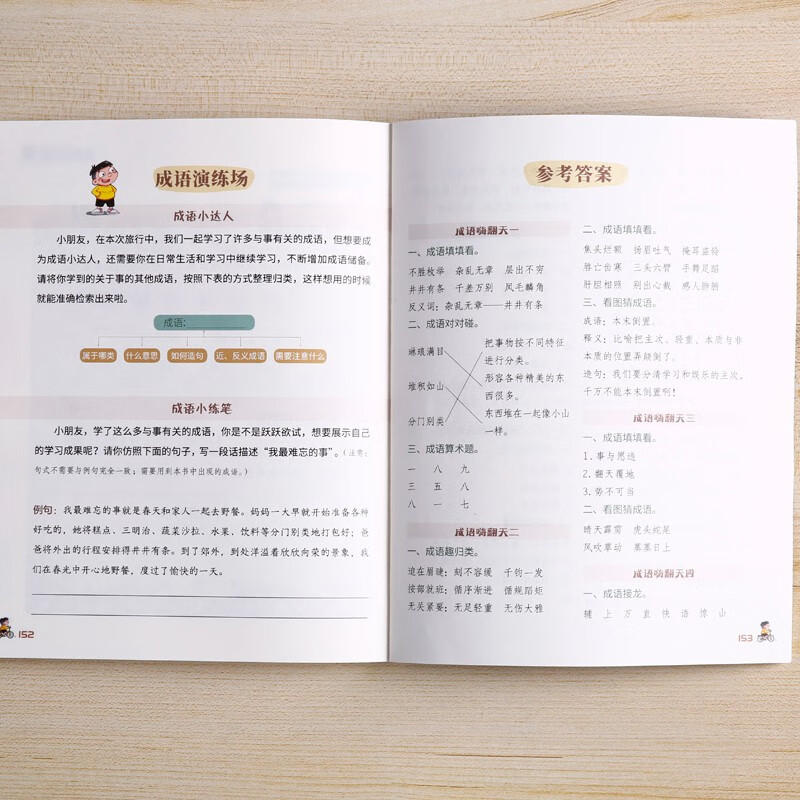 成语演练场
成语小达人
小朋友，在本次旅行中，我们一起学习了许多与事有关的成语，但想要成
为成语小达人，还需要你在日常生活和学习中继续学习，不断增加成语储备。
请将你学到的关于事的其他成语，按照下表的方式整理归类，这样想用的时候
就能准确检索出来啦。
成语：
属于哪类 什么意思 如何造句 近、反义成语 需要注意什么
成语小练笔
小朋友，学了这么多与事有关的成语，你是不是跃跃欲试，想要展示自己
的学习成果呢？请你仿照下面的句子，写一段话描述“我最难忘的事”。（注意：
句式不需要与例句完全一致；需要用到本书中出现的成语。）
例句：我最难忘的事就是春天和家人一起去野餐。妈妈一大早就开始准备各种
好吃的，她将糕点、三明治、蔬菜沙拉、水果、饮料等分门别类地打包好；爸
爸将外出的行程安排得井井有条。到了郊外，到处洋溢着欣欣向荣的景象，我
们在春光中开心地野餐，度过了愉快的一天。
152
参考答案
成语嗨翻天一
一、成语填填看。
不胜枚举 杂乱无章 层出不穷
井井有条 千差万别 凤毛麟角
反义词：杂乱无章——井井有条
二、成语对对碰。
琳琅满目
堆积如山
分门别类
把事物按不同特征
进行分类。
形容各种精美的东
西很多。
东西堆在一起像小山
一样。
三、成语算术题。
一 八 九
三 五 八
八 一 七
成语嗨翻天二
一、成语趣归类。
迫在眉睫：刻不容缓 千钧一发
按部就班：循序渐进 循规蹈矩
无关紧要：无足轻重 无伤大雅
二、成语填填看。
焦头烂额 扬眉吐气 掩耳盗铃
唇亡齿寒 三头六臂 手舞足蹈
肝胆相照 别出心裁 感人肺腑
三、看图猜成语。
成语：本末倒置。
释义：比喻把主次、轻重、本质与非
本质的位置弄颠倒了。
造句：我们要分清学习和娱乐的主次，
千万不能本末倒置啊！
成语嗨翻天三
一、成语填填看。
1.事与愿违
2.翻天覆地
3.势不可当
二、看图猜成语。
晴天霹雳 虎头蛇尾
风吹草动 蒸蒸日上
成语嗨翻天四
一、成语接龙。
辅 上 万 直 快 语 惊 山
153